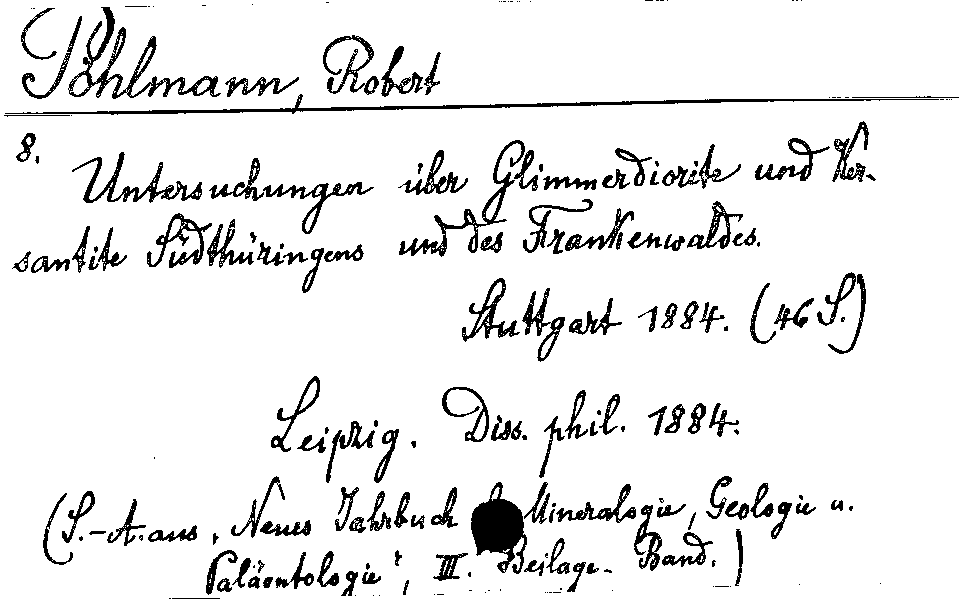 Pöhlmann, Robert
8.
Untersuchungen über Glimmerdiorite und Ker-
santite Südthüringens und des Frankenwaldes.
Stuttgart 1884. (46 S.)
Leipzig. Diss. phil. 1884.
(S.-A. aus "Neues Jahrbuch Mineralogie, Geologie u.
Paläontologie", III. Beilage-Band.)